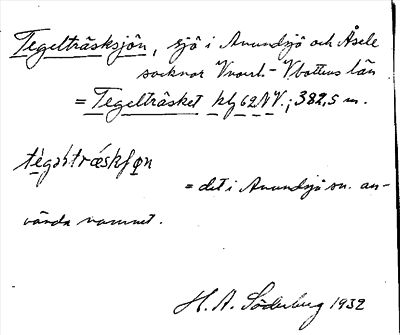 Tegelträsksjön, sjö i Anundsjö och Åsele
socknar Vnorrl.- Vbottens län
= Tegelträsket kbl 62 NV.; 382,5 m.
= det i Anundsjö sn. an-
vända namnet.
H. A. Söderberg 1932